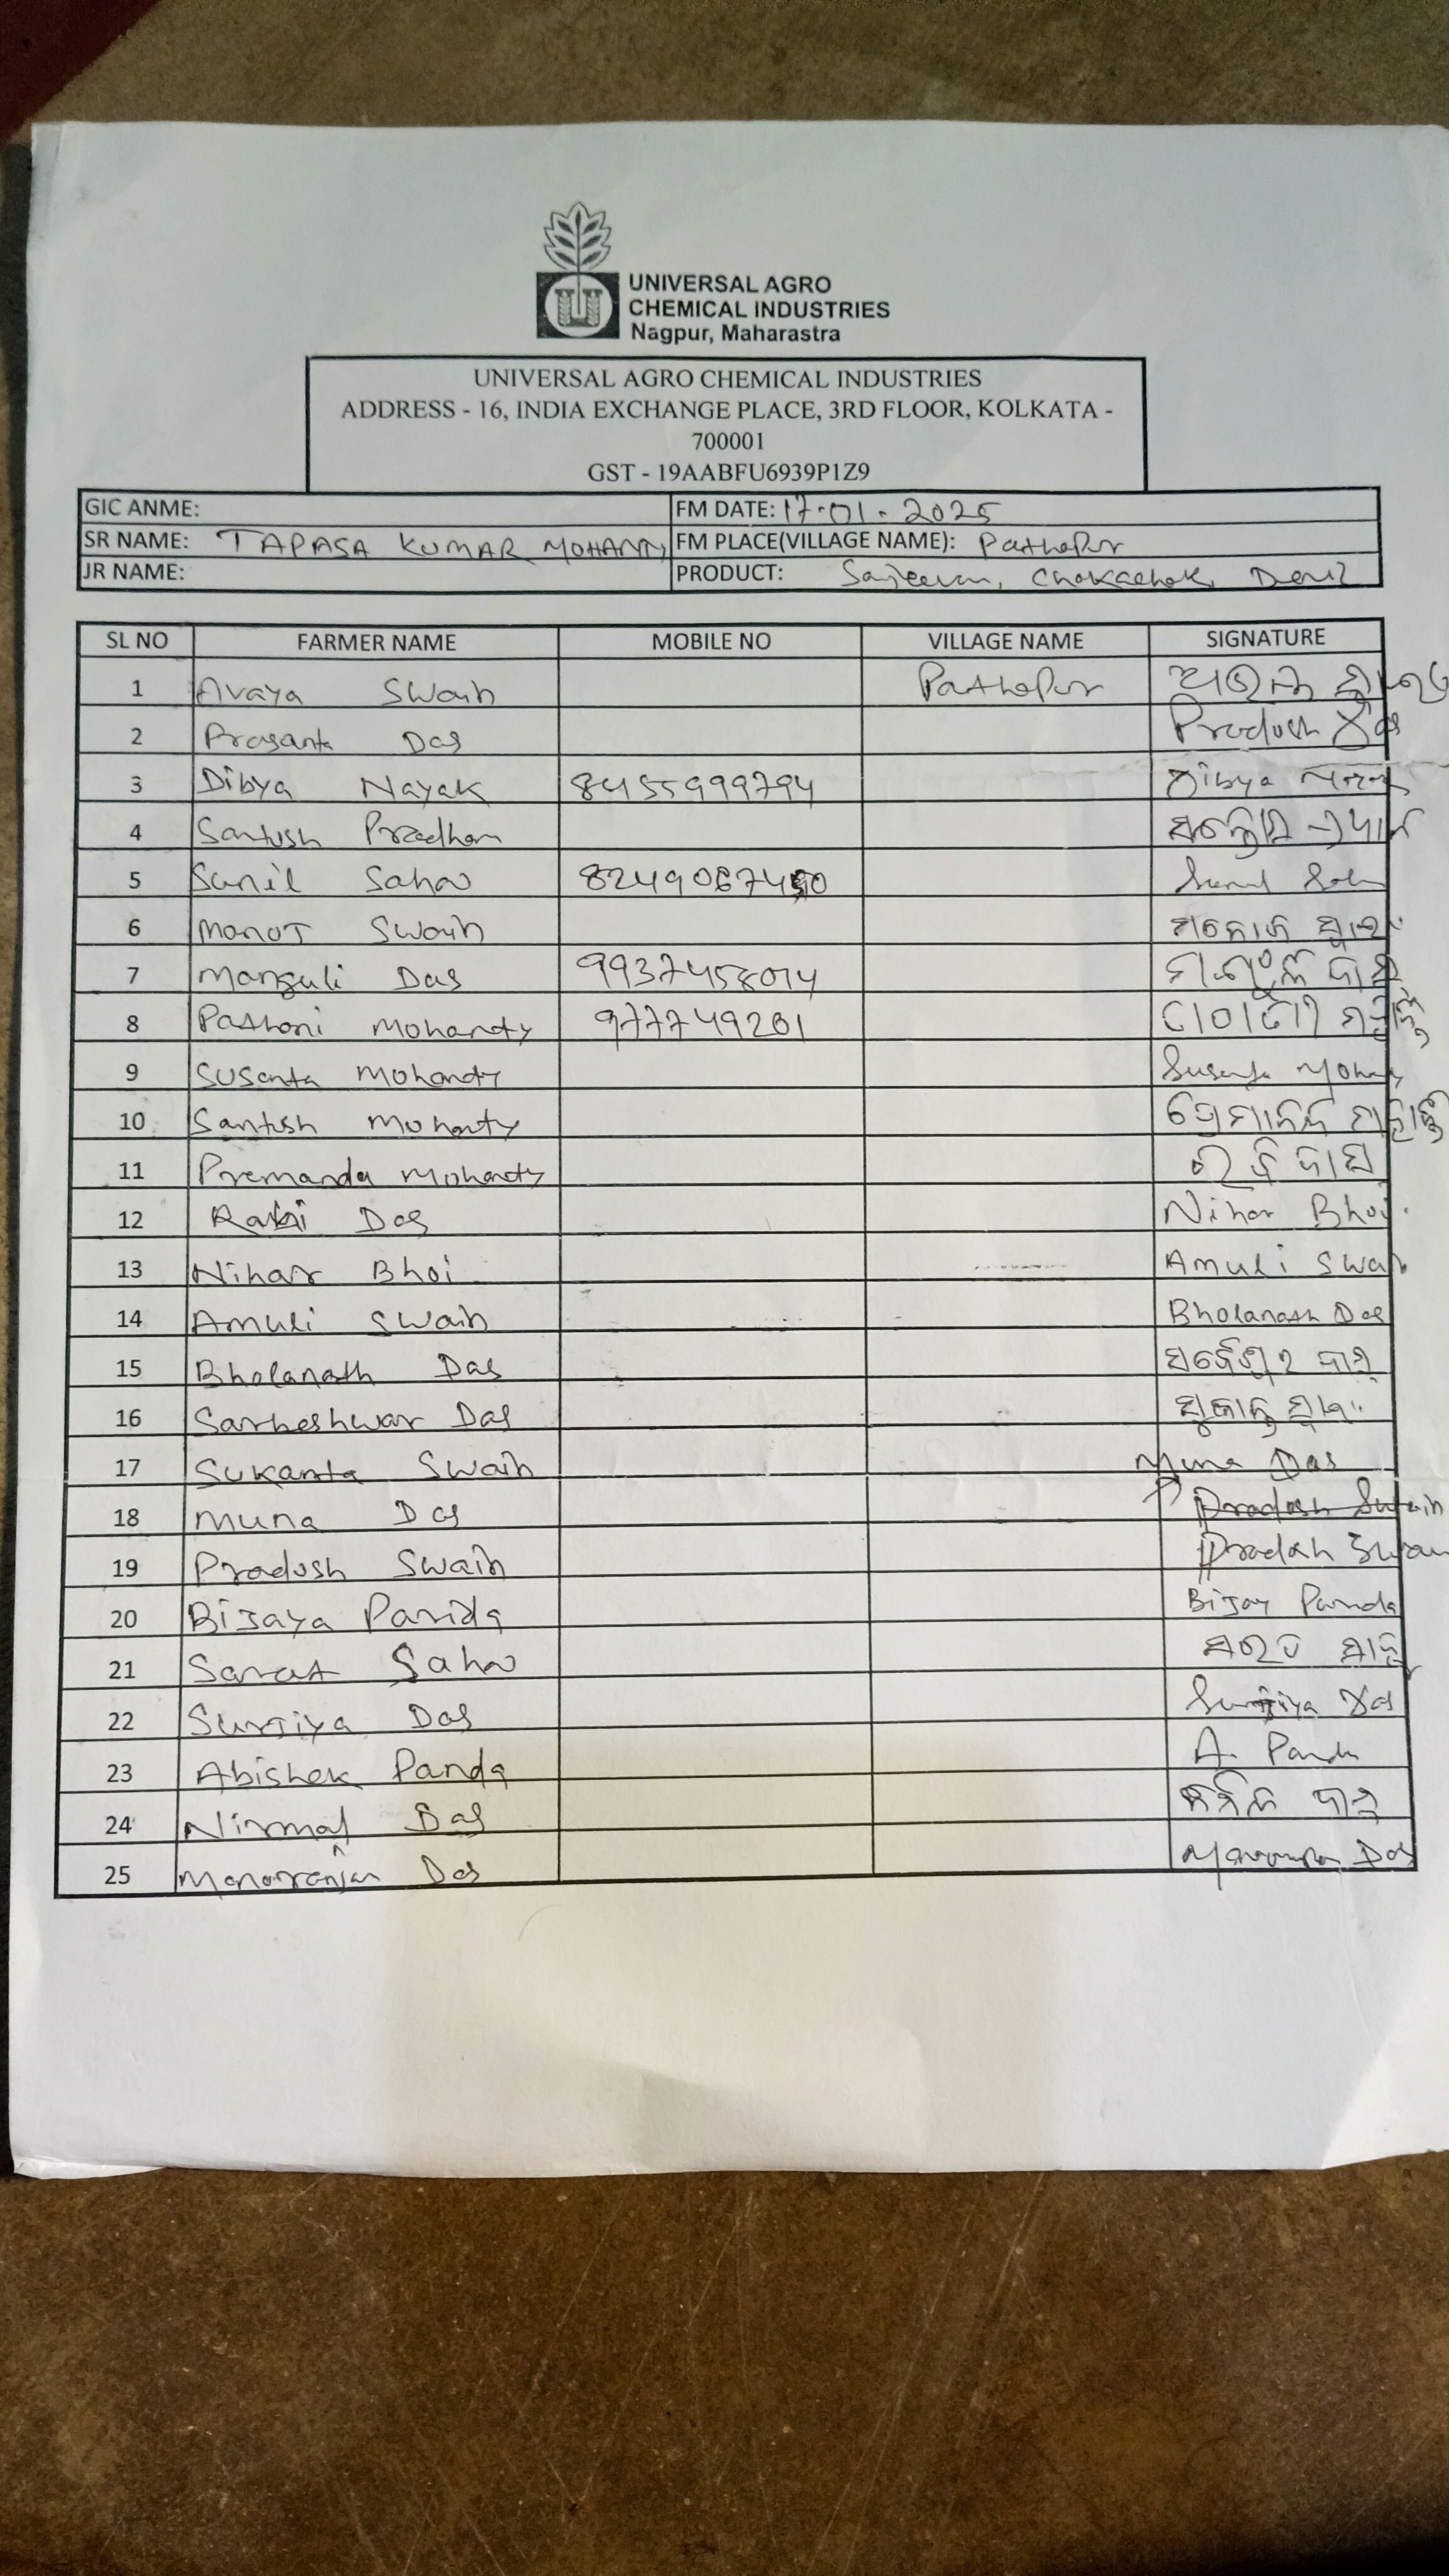 UNIVERSAL AGRO
CHEMICAL INDUSTRIES
Nagpur, Maharastra
UNIVERSAL AGRO CHEMICAL INDUSTRIES
ADDRESS - 16, INDIA EXCHANGE PLACE, 3RD FLOOR, KOLKATA -
700001
GST - 19AABFU6939P1Z9
GIC ANME: FM DATE: 17-01-2025
SR NAME: TAPASA KUMAR MOHANTY FM PLACE(VILLAGE NAME): Pathapur
JR NAME: PRODUCT: Sajeevan, Chokachak,
SL NO FARMER NAME MOBILE NO VILLAGE NAME SIGNATURE
1 Avaya Swain Pathapur
2 Prasanta Das Pradosh Das
3 Dibya Nayak 8455999794 Dibya
4 Santush Pradhan ସନ୍ତୋଷ
5 Sunil Sahoo Sunil
6 Manoj Swain ମନୋଜ ସ୍ୱାଇଁ
7 Manguli Das 9937458014 ଦାସ
8 Pathani Mohanty 977749201
9 Susanta Mohanty Susanta Mohanty
10 Santush Mohanty
11 Premanda Mohanty ରବି ଦାସ
12 Rabi Das Nihar Bhoi
13 Nihar Bhoi Amuli Swain
14 Amuli Swain Bholanath Das
15 Bholanath Das ସର୍ବେଶ୍ୱର ଦାସ
16 Sarbeshwar Das ସୁକାନ୍ତ ସ୍ୱାଇଁ
17 Sukanta Swain Muna Das
18 Muna Das Pradosh Swain
19 Pradosh Swain Pradosh Swain
20 Bijaya Parida Bijay Parida
21 Sarat Sahoo ଶରତ ସାହୁ
22 Surjiya Das Surjiya Das
23 Abishek Panda A. Panda
24 Nirmal Das ନିର୍ମଳ ଦାସ
25 Manoranjan Das Das